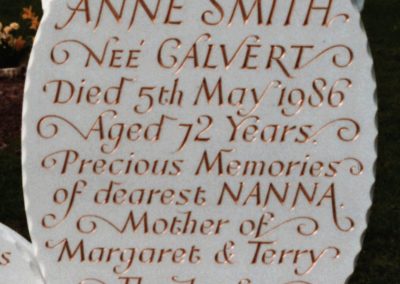 ANNE SMITH
NEÉ CALVERT
Died 5th May 1986
Aged 72 Years.
Precious Memories
of dearest NANNA.
Mother of
Margaret & Terry